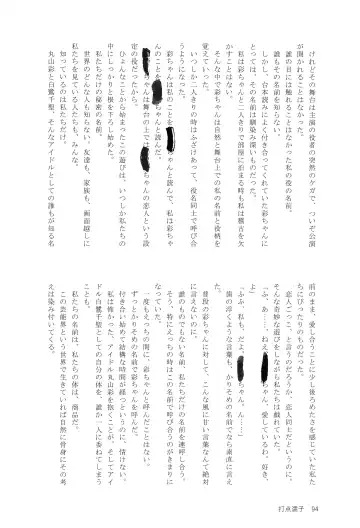 けれどその舞台は主演の役者の突然のケガで、ついぞ公演
が開かれることはなかった。
誰の目には触れることはなかった私の役の名前。
誰もその名前を知らない。
しかし、台本読みによく付き合ってくれていた彩ちゃんに
とっては、その名前は馴染み深いものだった。
私は彩ちゃんと二人きりで部屋に泊まる時も私は稽古を欠
かすことはない。
そんな中で彩ちゃんは自然と舞台上での私の名前と役柄を
覚えていった。
いつしか二人きりの時はふざけあって、役名同士で呼び合
うようになった。
彩ちゃんは私のことを ちゃんと読んで、私は彩ちゃ
んのことを ちゃんと読んだ。
ちゃんは舞台の上では ちゃんの恋人という設
定の役だったから。
ひょんなことから始まったこの遊びは、いつしか私たちの
中にしっかりと根を下ろし始めた。
私たちだけの秘密の名前。
世界のどんな人も知らない。友達も、家族も、画面越しに
私たちを見ている人たちも、みんな。
知っているのは私たちだけ。
丸山彩と白鷺千聖。そんなアイドルとしての誰もが知る名
前のまま、愛し合うことに少し後ろめたさを感じていた私た
ちにぴったりのものだった。
恋人ごっこ、と言うのだろうか、恋人同士だというのに。
そんな奇妙な遊びをしながら私たちは触れ合う。
「ふ、あ…、ねえ ちゃん、愛しているわ、好き、
「ふふ、私も、だよ ちゃん、ん……」
歯の浮くような言葉も、かりそめの名前でなら素直に言え
た。
普段の彩ちゃんに対して、こんな風に甘い言葉なんて絶対
に言えないのに。
誰のものでもない名前、私たちだけの名前を呼び合う。
そう、特にえっちの時はこの名前で呼び合うのがきまりに
なっていた。
一度もえっちの間に、彩ちゃんと呼んだことはない。
ずっとかりそめの名前で彩ちゃんを呼んだ。
付き合い始めて結構な時間が経つというのに、情けない。
私は怖かった。アイドル丸山彩を抱くことが。そして、アイ
ドル白鷺千聖としての自分の体を、誰か一人に委ねてしまう
ことも。
私たちの名前は、私たちの体は、商品だ。
この芸能界という世界で生きていれば自然に骨身にその考
えは染み付いてくる。
打点凜子 94